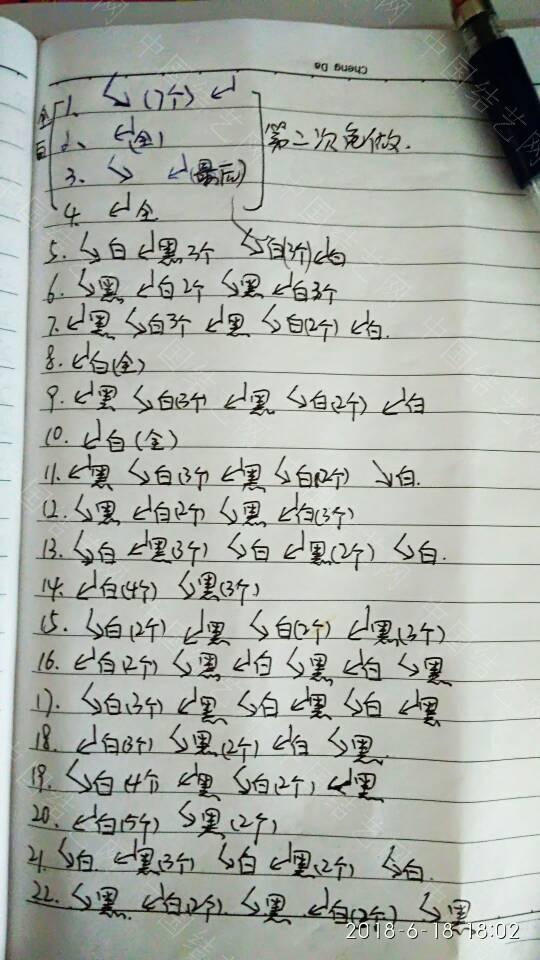 Cheng Da
全白
1. ↘ (7个) ↙
2. ↙(全)
3. ↘ ↙(最后)
4. ↙全
第二次免做.
5. ↘白 ↙黑3个 ↘白(3个)↙白
6. ↘黑 ↙白2个 ↘黑 ↙白3个
7. ↙黑 ↘白3个 ↙黑 ↘白(2个) ↙白.
8. ↙白(全)
9. ↙黑 ↘白(3个) ↙黑 ↘白(2个) ↙白
10. ↙白(全)
11. ↙黑 ↘白(3个) ↙黑 ↘白(2个) ↘白.
12. ↘黑 ↙白(2个) ↘黑 ↙白(3个)
13. ↘白 ↙黑(3个) ↘白 ↙黑(2个) ↘白.
14. ↙白(4个) ↘黑(3个)
15. ↘白(2个) ↙黑 ↘白(2个) ↙黑(3个)
16. ↙白(2个) ↘黑 ↙白 ↘黑 ↙白 ↘黑
17. ↘白(3个) ↙黑 ↘白 ↙黑 ↘白 ↙黑
18. ↙白(3个) ↘黑(2个) ↙白 ↘黑.
19. ↘白(4个 ↙黑 ↘白(2个) ↙黑
20. ↙白(5个) ↘黑(2个)
21. ↘白. ↙黑(3个) ↘白 ↙黑(2个) ↘白.
22. ↘黑. ↙白(2个). ↘黑. ↙白(2个) ↘黑
2018-6-18 18:02
中国结艺网